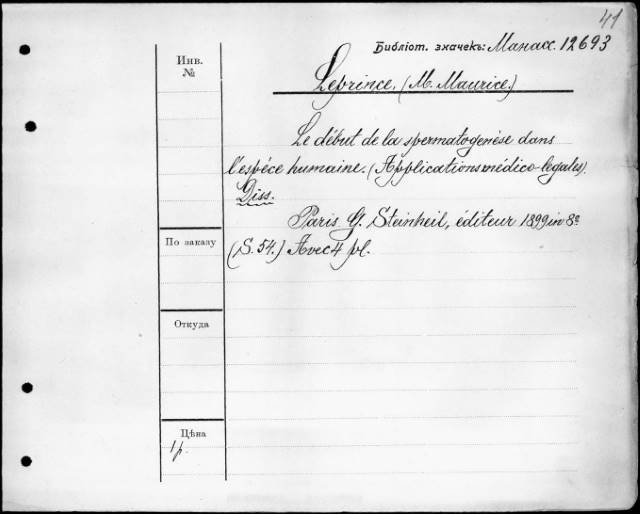 41
Библіот. значекъ: Манасс. 12693
Инв.
№
Leprince, (M. Maurice.)
Le début de la spermatogenèse dans
l'espèce humaine. (Applications médico-legales).
Diss.
Paris G. Steinheil, éditeur 1899 in 8º
По заказу
(S. 54.) Avec 4 pl.
Откуда
Цѣна
1 р.